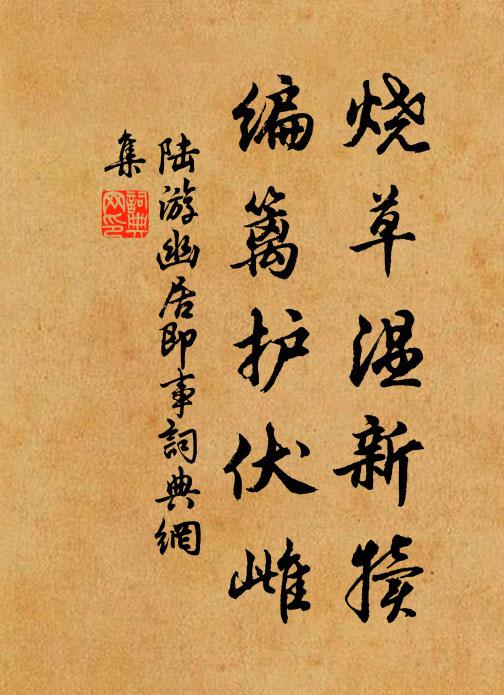 烧草温新犊
编篱护伏雌
陆游幽居即事词典網
集
詞典网印